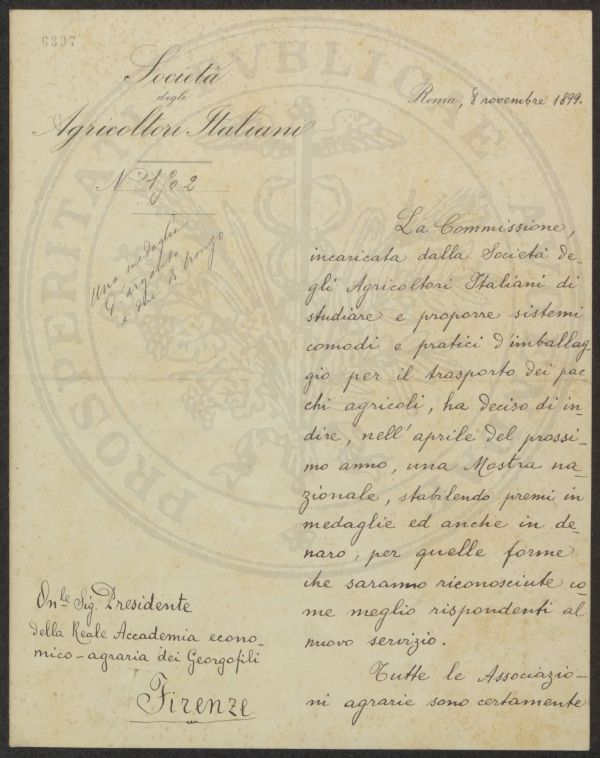 6807
Società
degli
Agricoltori Italiani
Roma, 8 novembre 1899.
Una medaglia
d'argento
e due di bronzo
La Commissione,
incaricata dalla Società de-
gli Agricoltori Italiani di
studiare e proporre sistemi
comodi e pratici d'imballag-
gio per il trasporto dei pac
chi agricoli, ha deciso di in-
dire, nell'aprile del prossi-
mo anno, una Mostra na-
zionale, stabilendo premi in
medaglie ed anche in de-
naro, per quelle forme
che saranno riconosciute co-
me meglio rispondenti al
nuovo servizio.
Tutte le Associazio-
ni agrarie sono certamente
On.le Sig. Presidente
della Reale Accademia econo-
mico-agraria dei Georgofili
Firenze